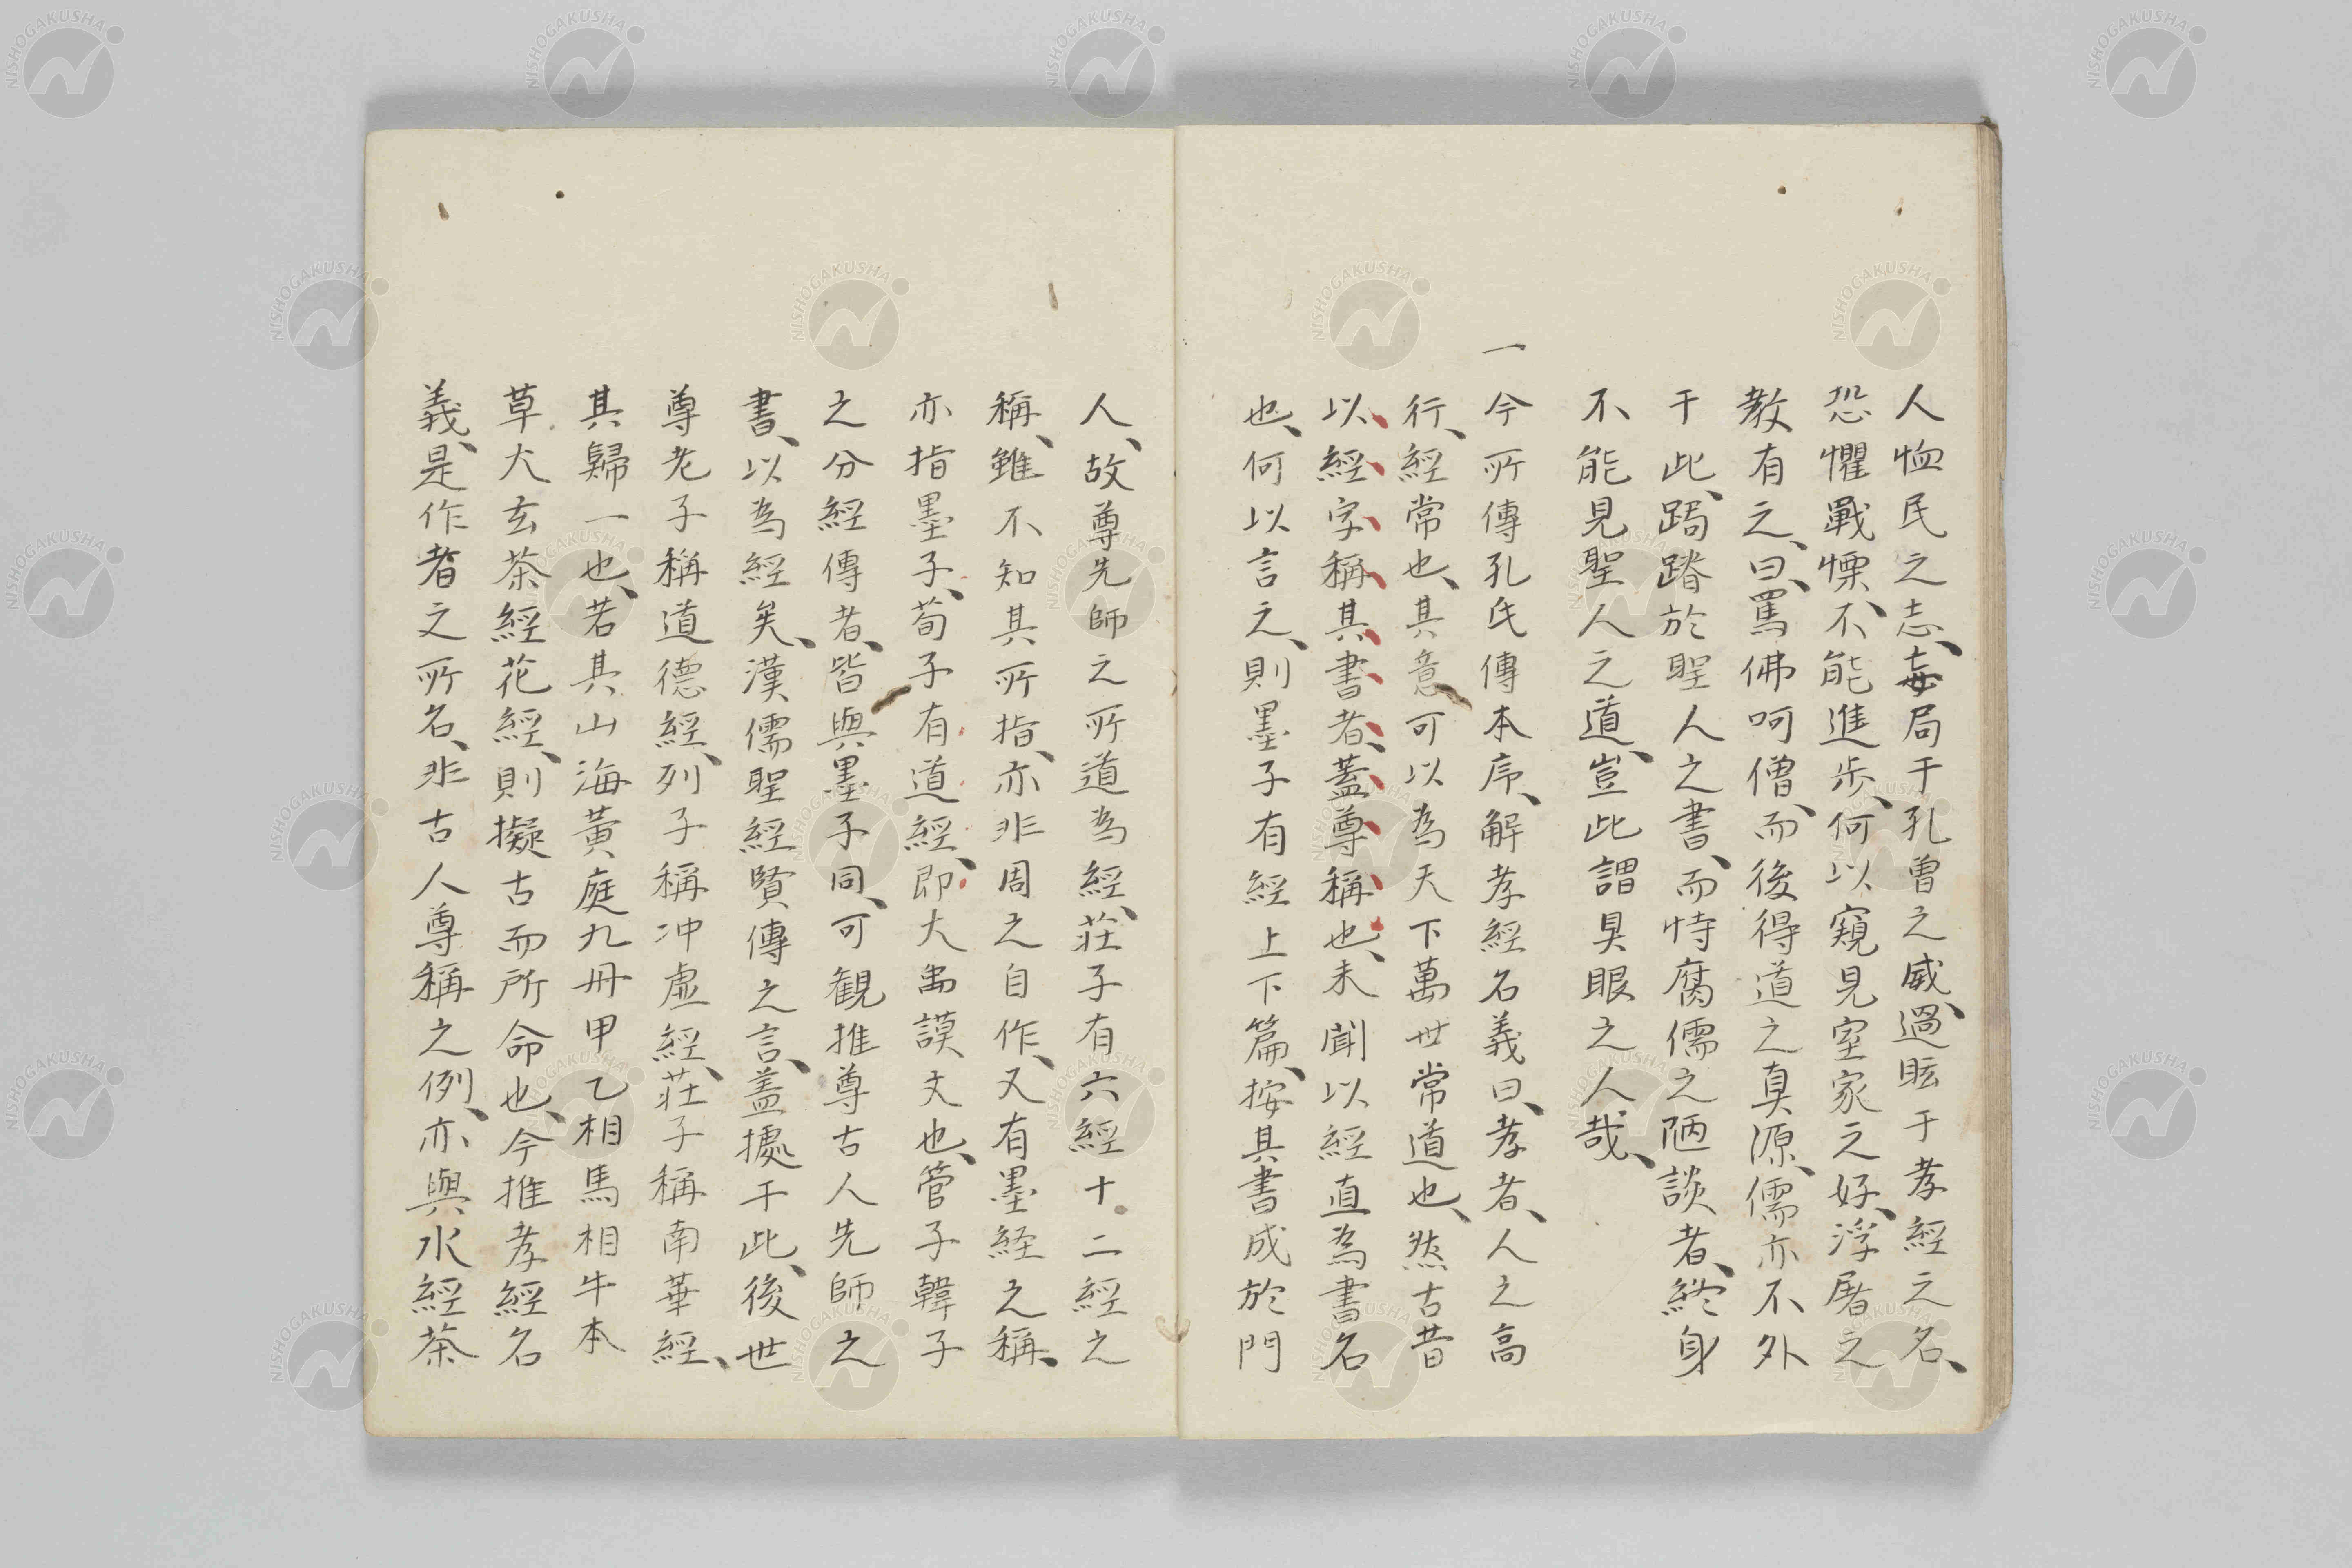 人恤民之志、毎局于孔曽之威、過眩于孝經之名、
恐懼戰慄、不能進歩、何以窺見室家之好、浮屠之
教有之、曰、罵佛呵僧、而後得道之真源、儒亦不外
于此、跼蹐於聖人之書、而恃腐儒之陋談者、終身
不能見聖人之道、豈此謂具眼之人哉、
一今所傳孔氏傳本序、解孝經名義曰、孝者、人之高
行、經常也、其意可以為天下萬世常道也、然古昔
以經字稱其書者、蓋尊稱也、未聞以經直為書名
也、何以言之、則墨子有經上下篇、按其書成於門
人、故尊先師之所道為經、莊子有六經十二經之
稱、雖不知其所指、亦非周之自作、又有墨経之稱、
亦指墨子、荀子有道經、即大禹謨文也、管子韓子
之分經傳者、皆與墨子同、可観推尊古人先師之
書、以為經矣、漢儒聖經賢傳之言、蓋據于此、後世
尊老子稱道德經、列子稱冲虛經、莊子稱南華經、
其歸一也、若其山海黃庭九丹甲乙相馬相牛本
草大玄茶經花經、則擬古而所命也、今推孝經名
義、是作者之所名、非古人尊稱之例、亦與水經茶
NISHOGAKUSHA